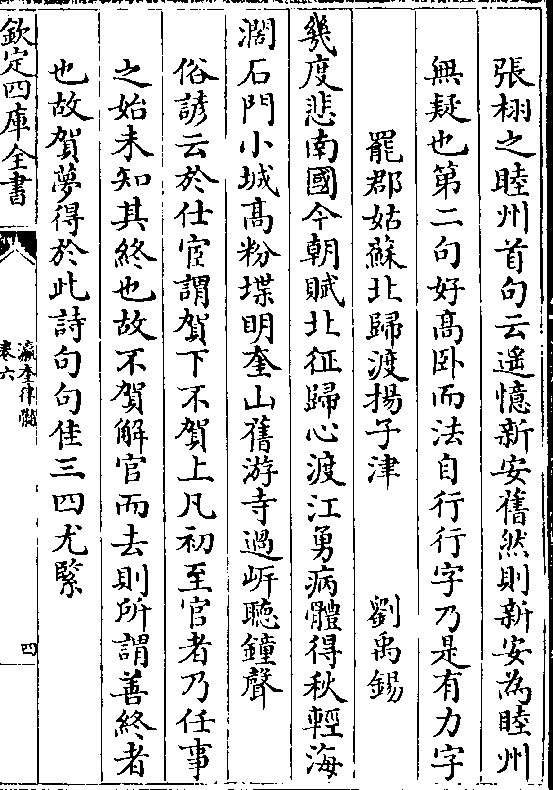 張栩之睦州首句云遙憶新安舊然則新安為睦州
無疑也第二句好高卧而法自行行字乃是有力字
罷郡姑蘇北歸渡揚子津　劉禹錫
幾度悲南國今朝賦北征歸心渡江勇病體得秋輕海
濶石門小城高粉堞明奎山舊游寺過岍聽鐘聲
俗諺云於仕宦謂賀下不賀上凡初至官者乃任事
之始未知其終也故不賀解官而去則所謂善終者
也故賀夢得於此詩句句佳三四尤緊
欽定四庫全書
瀛奎律髓
卷六
四